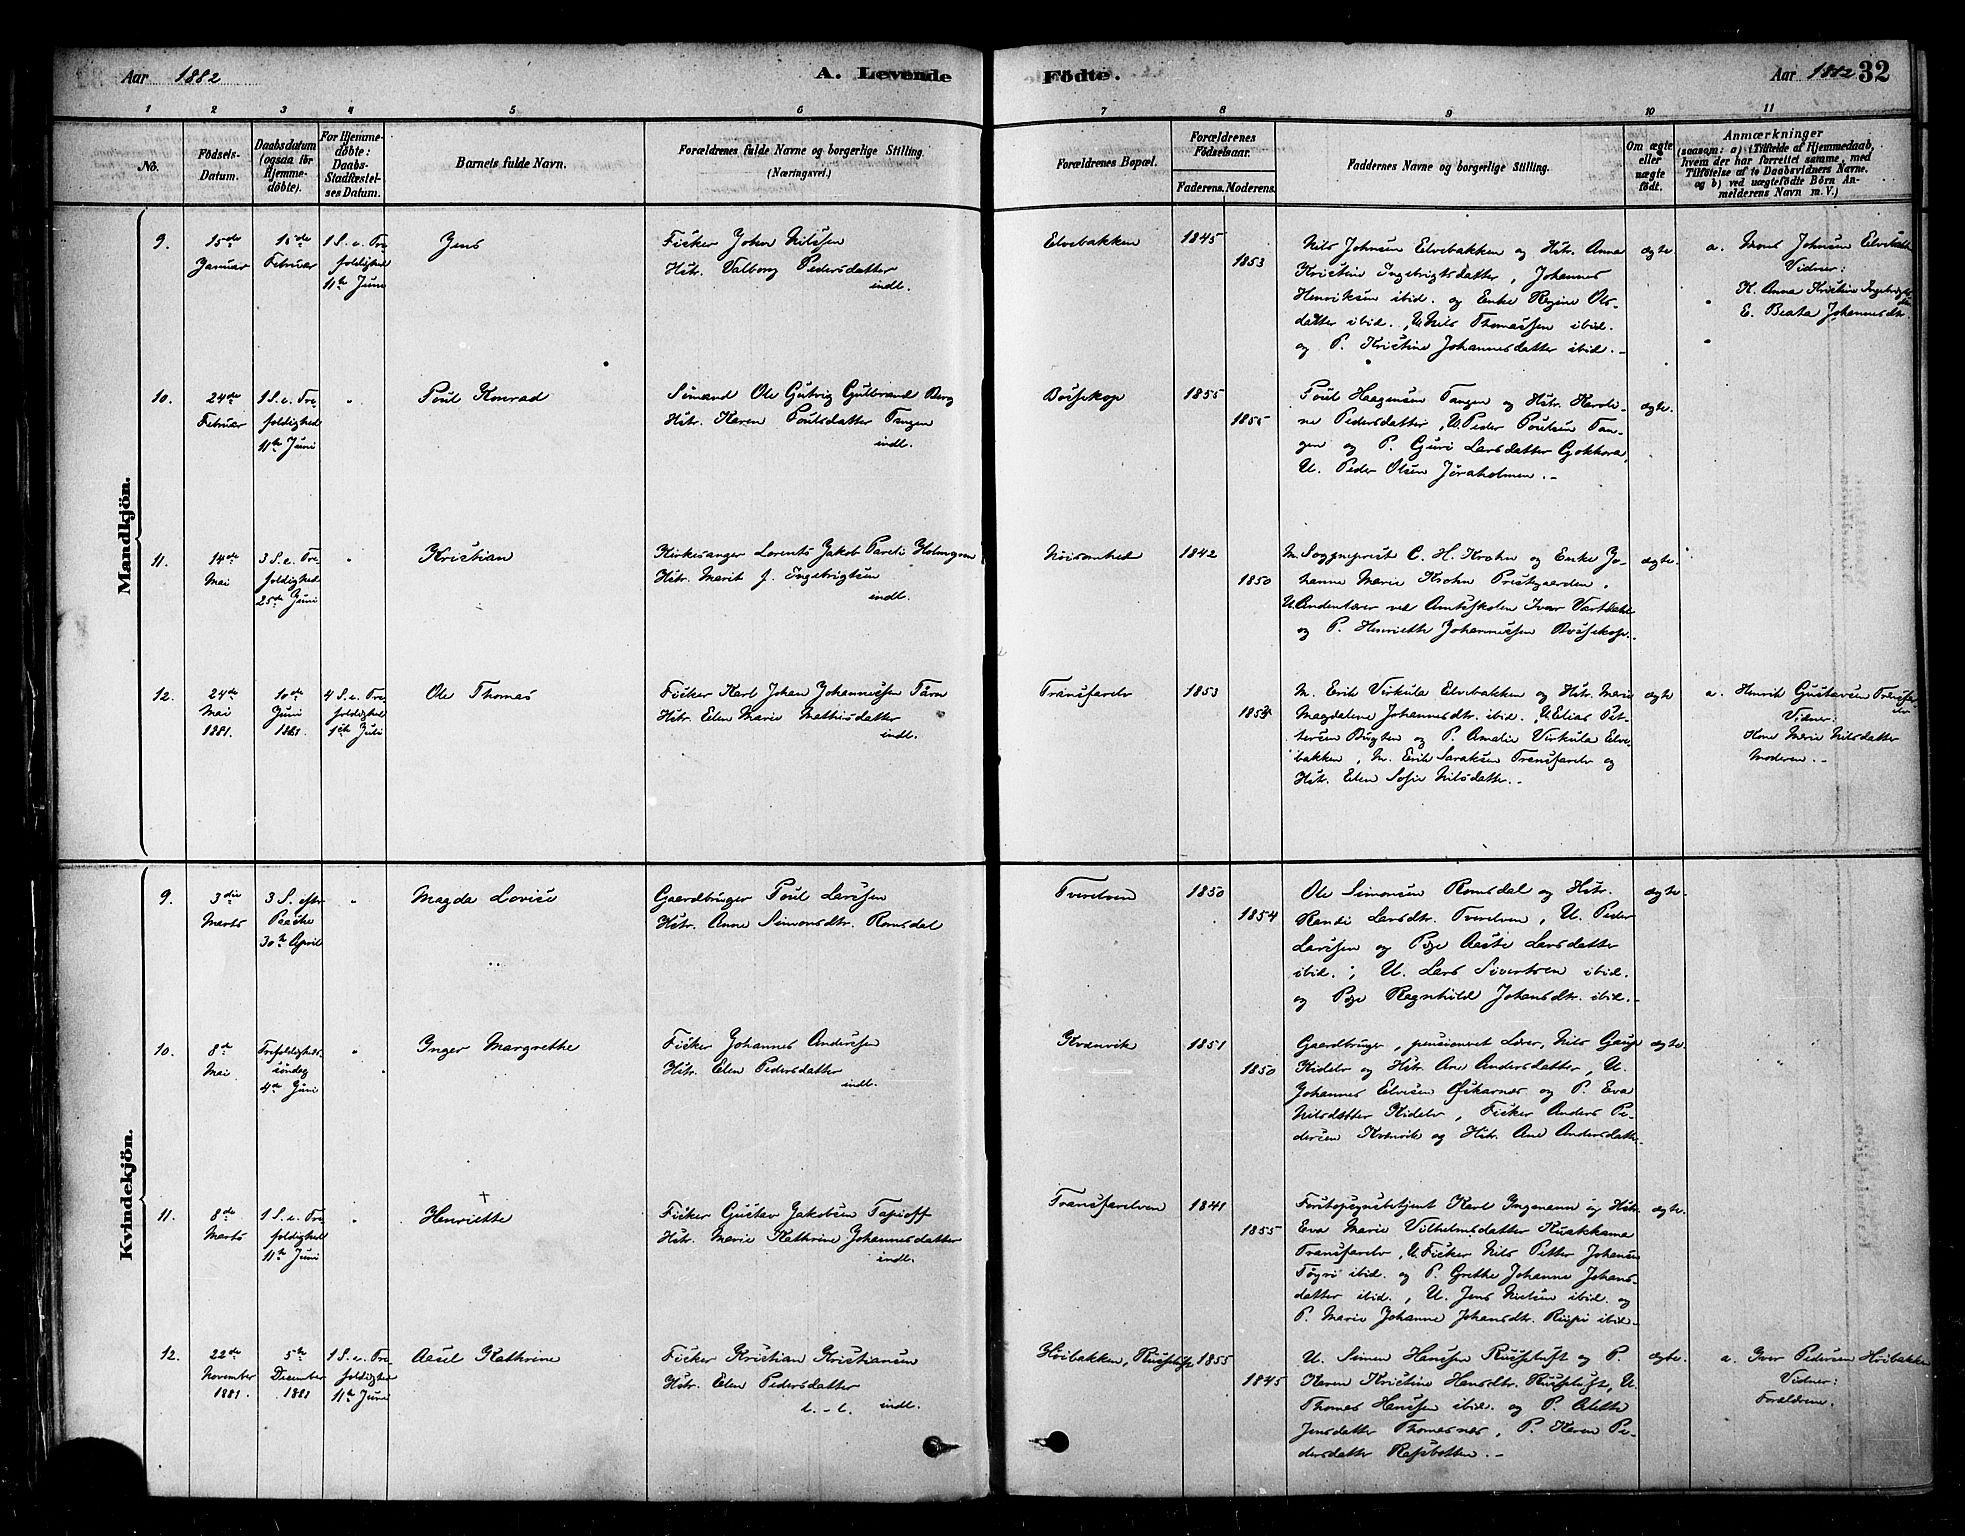 Aar 1882
A. Levende
Födte.
Aar 1882 32
1 2 3 4 5 6 7 8 9 10 11
No.
Födsels-
Datum.
Daabsdatum
(ogsaa for
Hjemme-
döbte).
For Hjemme-
döbte:
Daabs-
Stadfæstel-
ses Datum.
Barnets fulde Navn.
Forældrenes fulde Navne og borgerlige Stilling.
(Næringsvei.)
Forældrenes Bopæl.
Forældrenes
Födselsaar.
Faderens. Moderens.
Faddernes Navne og borgerlige Stilling.
Om ægte
eller
uægte
født.
Anmærkninger
(saasom: a) i Tilfælde af Hjemmedaab,
hvem der har forrettet samme, med
Tilföielse af to Daabsvidners Navne.
og b) ved uægtefödte Börn An-
melderens Navn m. V.)
Mandkjön.
9.
15de
Januar
15de
Februar
1 S. e. Tre
foldighed
11te Juni
Jens
Fisker John Nilssen
Hstr. Valborg Pedersdatter
indl.
Elvebakken
1845
1853
Nils Johnsen Elvebakken og Hstr. Anna
Kristine Ingebrigtsdatter, Johannes
Henriksen ibid. og Enke Regine Ols-
datter ibid., U. Nils Thomassen ibid.
og P. Kristine Johannesdatter ibid.
ægte
a. Mons Johnsen Elvebakk
Vidner:
K. Anna Kristine Ingebrigts
dtr
E. Beata Johannesdtr.
10.
24de
Februar
1 S. e. Tre-
foldighed
11te Juni
"
Poul Konrad
Sømand Ole Gutvig Gulbrand Berg
Hstr. Karen Poulsdatter Tangen
indl.
Bossekop
1855
1855
Poul Haagensen Tangen og Hstr. Karoli-
ne Pedersdatter, U. Peder Poulsen Tan-
gen og P. Guri Larsdatter Gokhora,
U. Peder Olsen Jøraholmen.
ægte.
11.
14de
Mai
3 S. e. Tre
foldighed
25de Juni
"
Kristian
Kirkesanger Lorents Jakob Pareli Holmgren
Hstr. Marit f. Ingebrigtsen
indl.
Nøisomhed
1842
1850
M. Sogneprest C. H. Krohn og Enke Jo-
hanne Marie Krohn Prestgaarden,
U. Andenlærer ved Amtsskolen Ivar Vartdahl
og P. Henriette Johannessen Bossekop.
ægte.
12.
24de
Mai
1881.
10de
Juni
1881
4 S. e. Tre-
foldighed
1ste Juli
Ole Thomas
Fisker Karl Johan Johannessen Tarn
Hstr. Elen Marie Mathisdatter
indl.
Transfarelv
1853
M. Erik Virkula Elvebakken og Hstr. Marie
Magdalene Johannesdtr. ibid., U. Elias Pet-
tersen Bugten og P. Amalie Virkula Elve-
bakken, M. Erik Saraksen Transfarelv og
Hstr. Elen Sofie Nilsdatter.
ægte
a. Henrik Gustavsen Transfar
elv
Vidner:
Kone Marie Nilsdatter
Moderen.
Kvindekjön.
9.
3die
Marts
3 S. eftr
Paaske
30te April
"
Magda Lovise
Gaardbruger Poul Larssen
Hstr. Anne Simonsdtr. Romsdal
Tverelven
1850
1854
Ole Simonsen Romsdal og Hstr.
Randi Larsdtr. Tverelven, U. Peder
Larssen og Pige Aaste Larsdatter
ibid., U. Lars Sivertsen ibid.
og Pige Ragnhild Johansdtr. ibid.
ægte.
10.
8de
Mai
Trefoldigheds
søndag
4de Juni
"
Inger Margrethe
Fisker Johannes Anderssen
Hstr. Elen Pedersdatter
indl.
Kvænvik
1851
1850
Gaardbruger, pensioneret Lærer, Nils Gaup
Kidelv og Hstr. Ane Andersdatter, U.
Johannes Elvesen Øskarnes og P. Eva
Nilsdatter Kidelv, Fisker Anders Pe-
dersen Kvænvik og Hstr. Ane Andersdatte
ægte.
11.
8de
Marts
1 S. e. Tre-
foldighed
11te Juni
"
Henriette
Fisker Gustav Jakobsen Tapioff
Hstr. Marie Kathrine Johannesdatter
indl.
Transfarelven
1841
1855
Forstopsynsbetjent Karl Ingemann og Hstr.
Eva Marie Vilhelmsdatter Kuakkama
Transfarelv, U. Fisker Nils Petter Johansen
Tøyri ibid. og P. Grethe Johanne Johans-
datter ibid., U. Jens Nielsen ibid. og
P. Marie Johanne Johansdtr. Ruspi ibid.
ægte.
12.
22de
November
1881.
5te
December
1881
1 S. e. Tre-
foldighed
11te Juni
Aasel Kathrine
Fisker Kristian Kristiansen
Hstr. Elen Pedersdatter
l. - l. indl.
Høibakken, Russeluft
1855
1845
U. Simen Hanssen Russeluft og P.
Karen Kristine Hansdtr. Russeluft, U.
Thomas Hanssen ibid. og P. Alette
Jensdatter Thomasnes, P. Karen Pe-
dersdatter Rafsbotten.
ægte.
a. Iver Pedersen Høibakken
Vidner:
Forældrene.